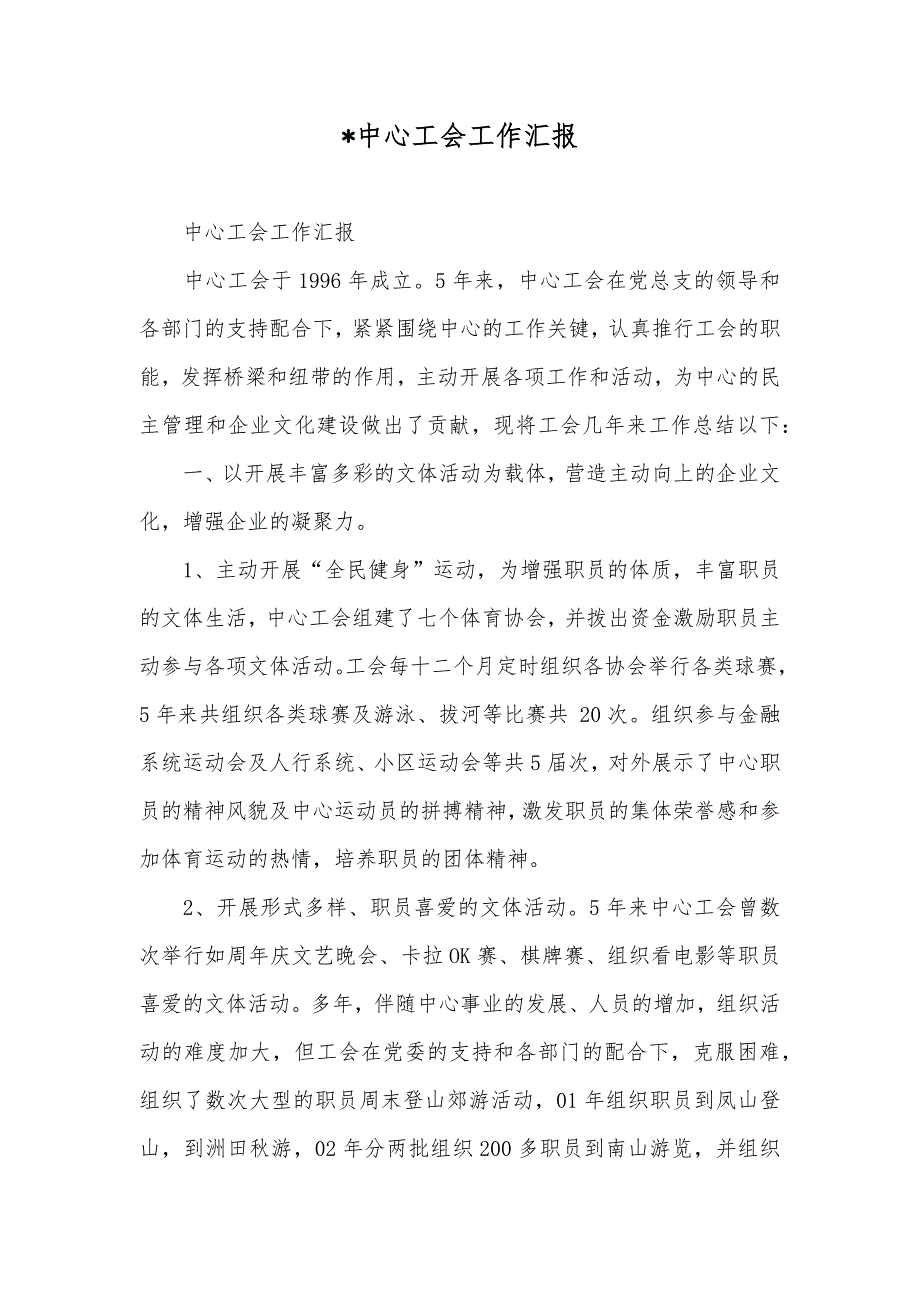 *中心工会工作汇报
中心工会工作汇报
中心工会于1996 年成立。5 年来，中心工会在党总支的领导和
各部门的支持配合下，紧紧围绕中心的工作关键，认真推行工会的职
能，发挥桥梁和纽带的作用，主动开展各项工作和活动，为中心的民
主管理和企业文化建设做出了贡献，现将工会几年来工作总结以下：
一、以开展丰富多彩的文体活动为载体，营造主动向上的企业文
化，增强企业的凝聚力。
1、主动开展“全民健身”运动，为增强职员的体质，丰富职员
的文体生活，中心工会组建了七个体育协会，并拨出资金激励职员主
动参与各项文体活动。工会每十二个月定时组织各协会举行各类球赛，
5 年来共组织各类球赛及游泳、拔河等比赛共 20 次。组织参与金融
系统运动会及人行系统、小区运动会等共 5 届次，对外展示了中心职
员的精神风貌及中心运动员的拼搏精神，激发职员的集体荣誉感和参
加体育运动的热情，培养职员的团体精神。
2、开展形式多样、职员喜爱的文体活动。5 年来中心工会曾数
次举行如周年庆文艺晚会、卡拉 OK 赛、棋牌赛、组织看电影等职员
喜爱的文体活动。多年，伴随中心事业的发展、人员的增加，组织活
动的难度加大，但工会在党委的支持和各部门的配合下，克服困难，
组织了数次大型的职员周末登山郊游活动，01 年组织职员到凤山登
山，到洲田秋游，02 年分两批组织 200 多职员到南山游览，并组织